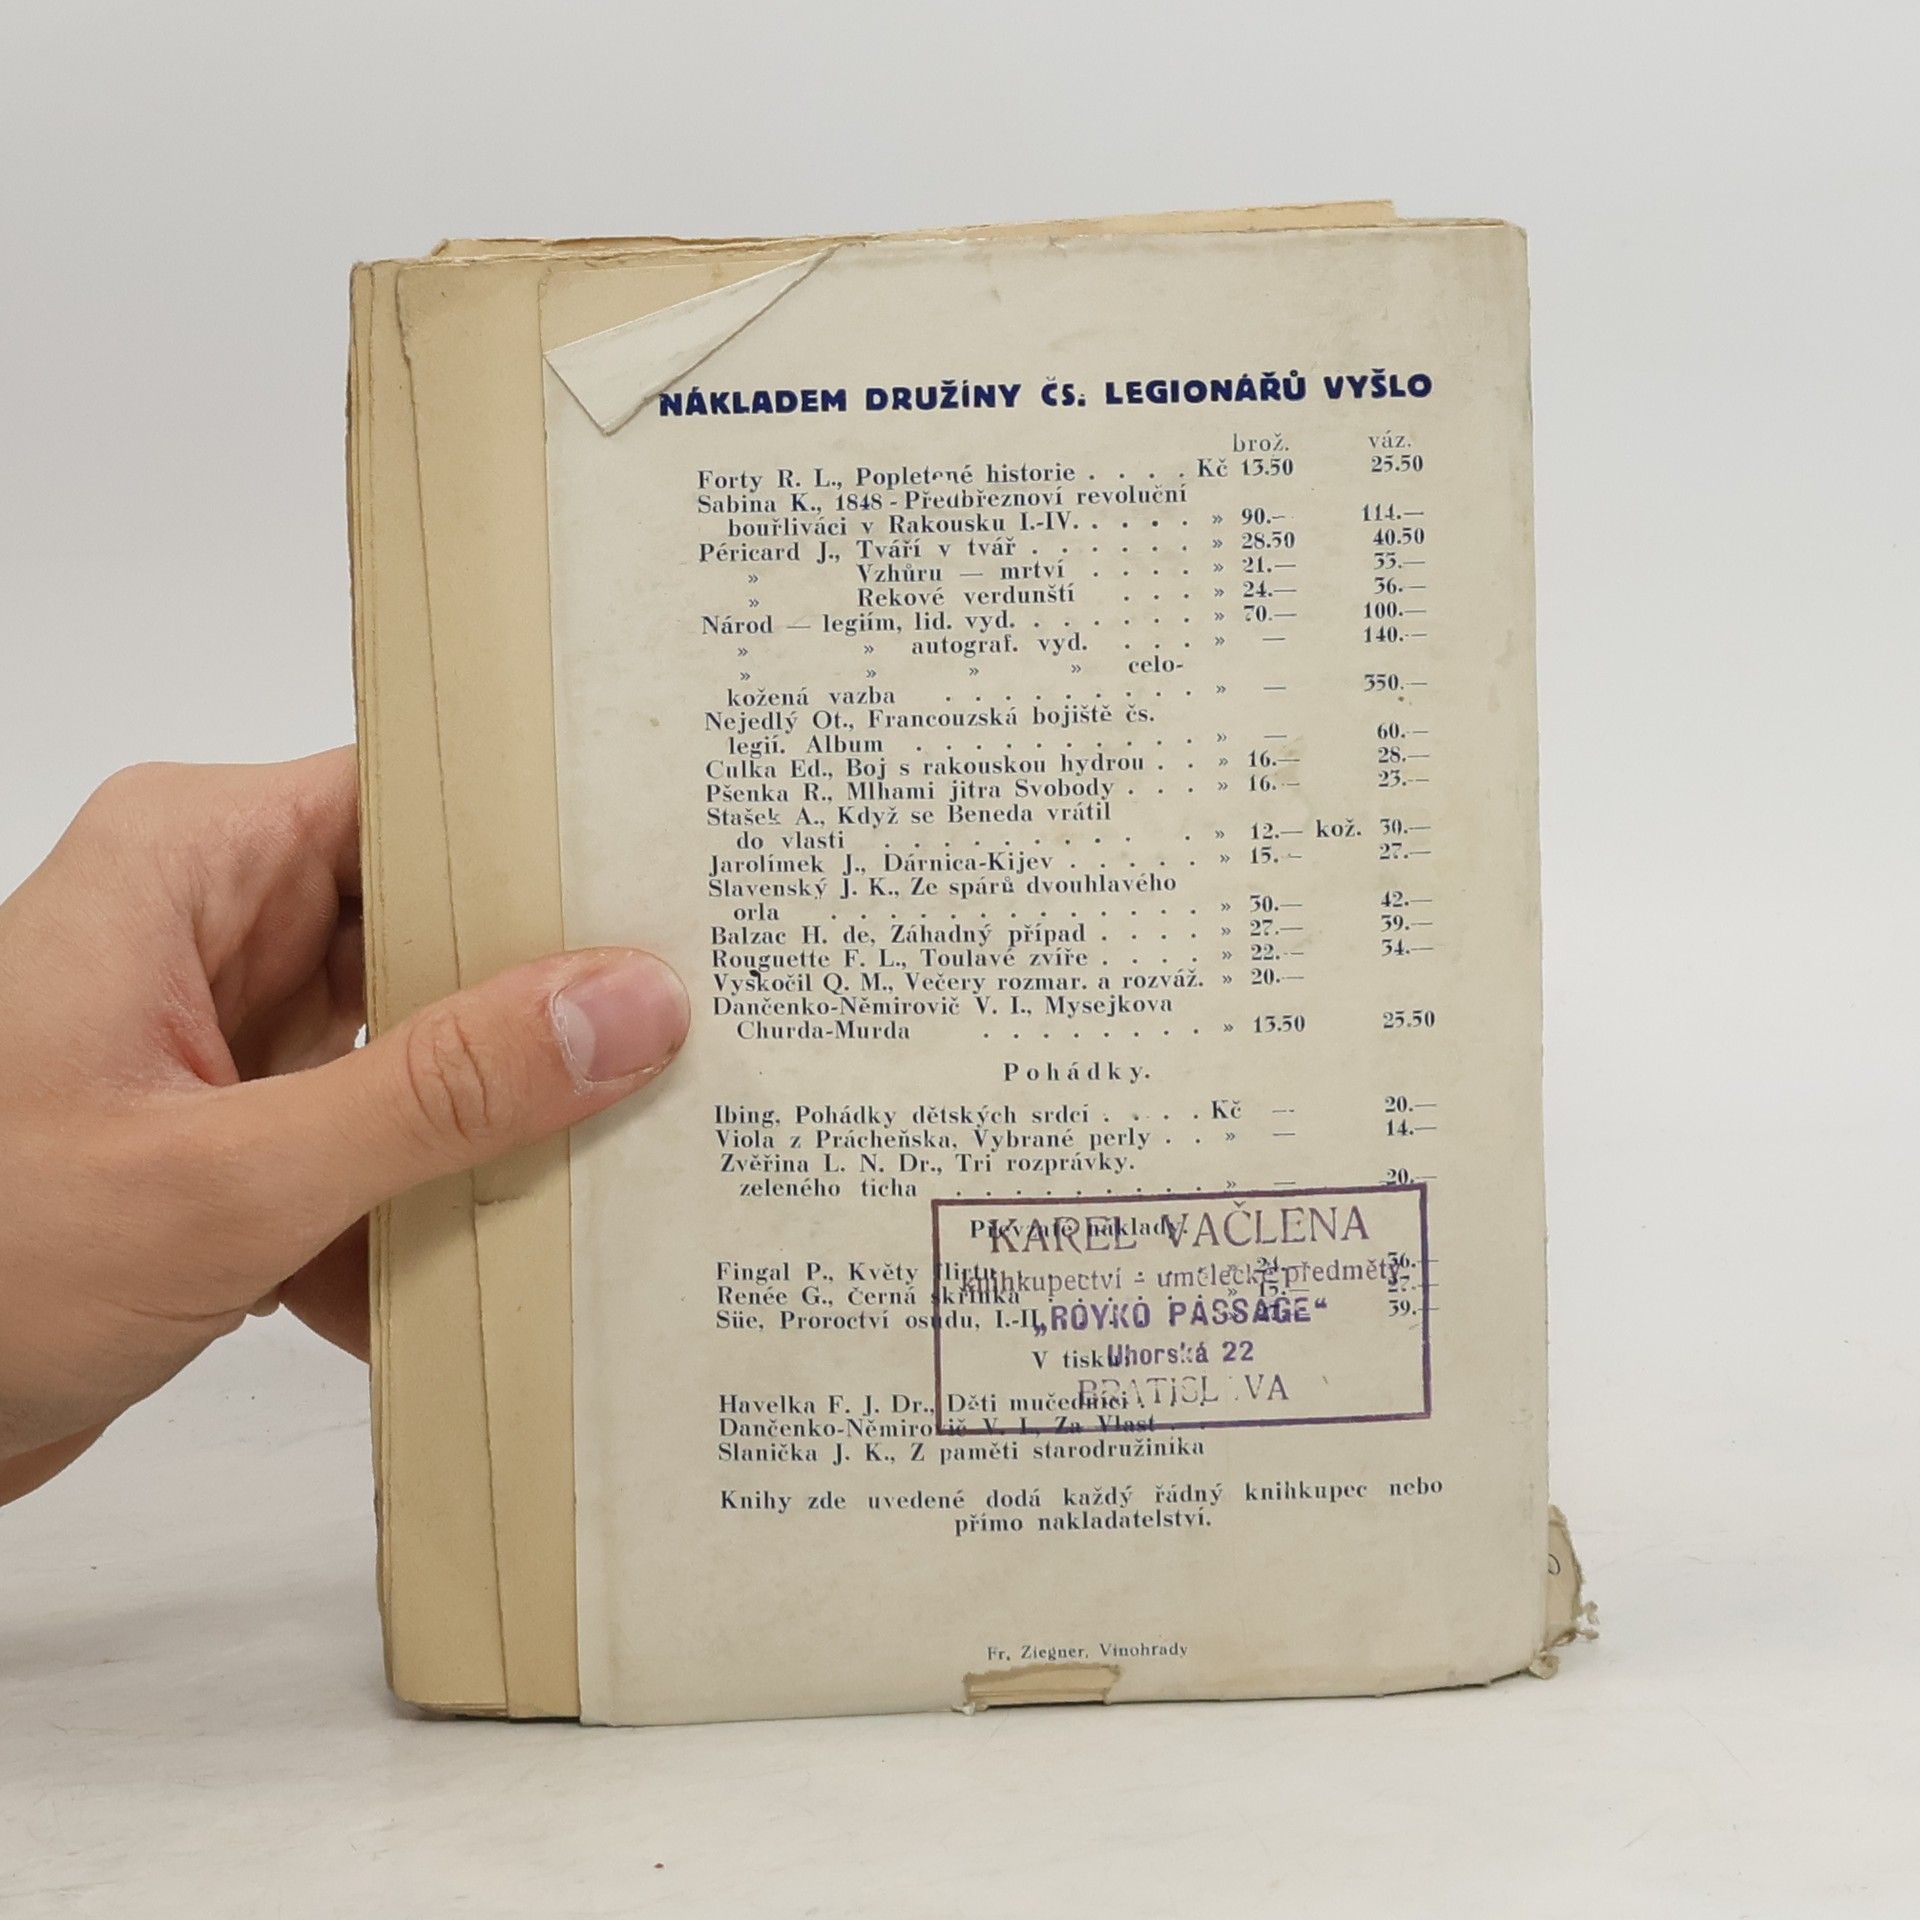 NÁKLADEM DRUŽÍNY ČS. LEGIONÁŘŮ VYŠLO
brož. váz.
Forty R. L., Popletené historie . . . . Kč 13.50 25.50
Sabina K., 1848 - Předbřeznoví revoluční
bouřliváci v Rakousku I.-IV. . . . . » 90.— 114.—
Péricard J., Tváří v tvář . . . . . . » 28.50 40.50
» Vzhůru — mrtví . . . . » 21.— 33.—
» Rekové verdunští . . . » 24.— 36.—
Národ — legiím, lid. vyd. . . . . . . » 70.— 100.—
» » autograf. vyd. . . . » — 140.—
» » » » celo-
kožená vazba . . . . . . . . . » — 350.—
Nejedlý Ot., Francouzská bojiště čs.
legií. Album . . . . . . . . . . » — 60.—
Culka Ed., Boj s rakouskou hydrou . . » 16.— 28.—
Pšenka R., Mlhami jitra Svobody . . . » 16.— 23.—
Stašek A., Když se Beneda vrátil
do vlasti . . . . . . . . . . » 12.— kož. 30.—
Jarolímek J., Dárnica-Kijev . . . . . » 15.— 27.—
Slavenský J. K., Ze spárů dvouhlavého
orla . . . . . . . . . . . . . » 30.— 42.—
Balzac H. de, Záhadný případ . . . . » 27.— 39.—
Rouguette F. L., Toulavé zvíře . . . . » 22.— 34.—
Vyskočil Q. M., Večery rozmar. a rozváž. » 20.—
Dančenko-Němirovič V. I., Mysejkova
Churda-Murda . . . . . . . . » 13.50 25.50
Pohádky.
Ibing, Pohádky dětských srdcí . . . . Kč — 20.—
Viola z Prácheňska, Vybrané perly . . » — 14.—
Zvěřina L. N. Dr., Tri rozprávky.
zeleného ticha . . . . . . . . . » — 20.—
Převzaté náklady.
KAREL VAČLENA
Fingal P., Květy flirtu . . . . . » 24.— 36.—
knihkupectví - umělecké předměty
Renée G., Černá skřínka . . . . . » 15.— 27.—
Süe, Proroctví osudu, I.-II. 39.—
„ROYKO PASSAGE“
V tisku:
Uhorská 22
BRATISLAVA
Havelka F. J. Dr., Děti mučedníci . . .
Dančenko-Němirovič V. I., Za Vlast . .
Slanička J. K., Z paměti starodružiníka
Knihy zde uvedené dodá každý řádný knihkupec nebo
přímo nakladatelství.
Fr. Ziegner, Vinohrady